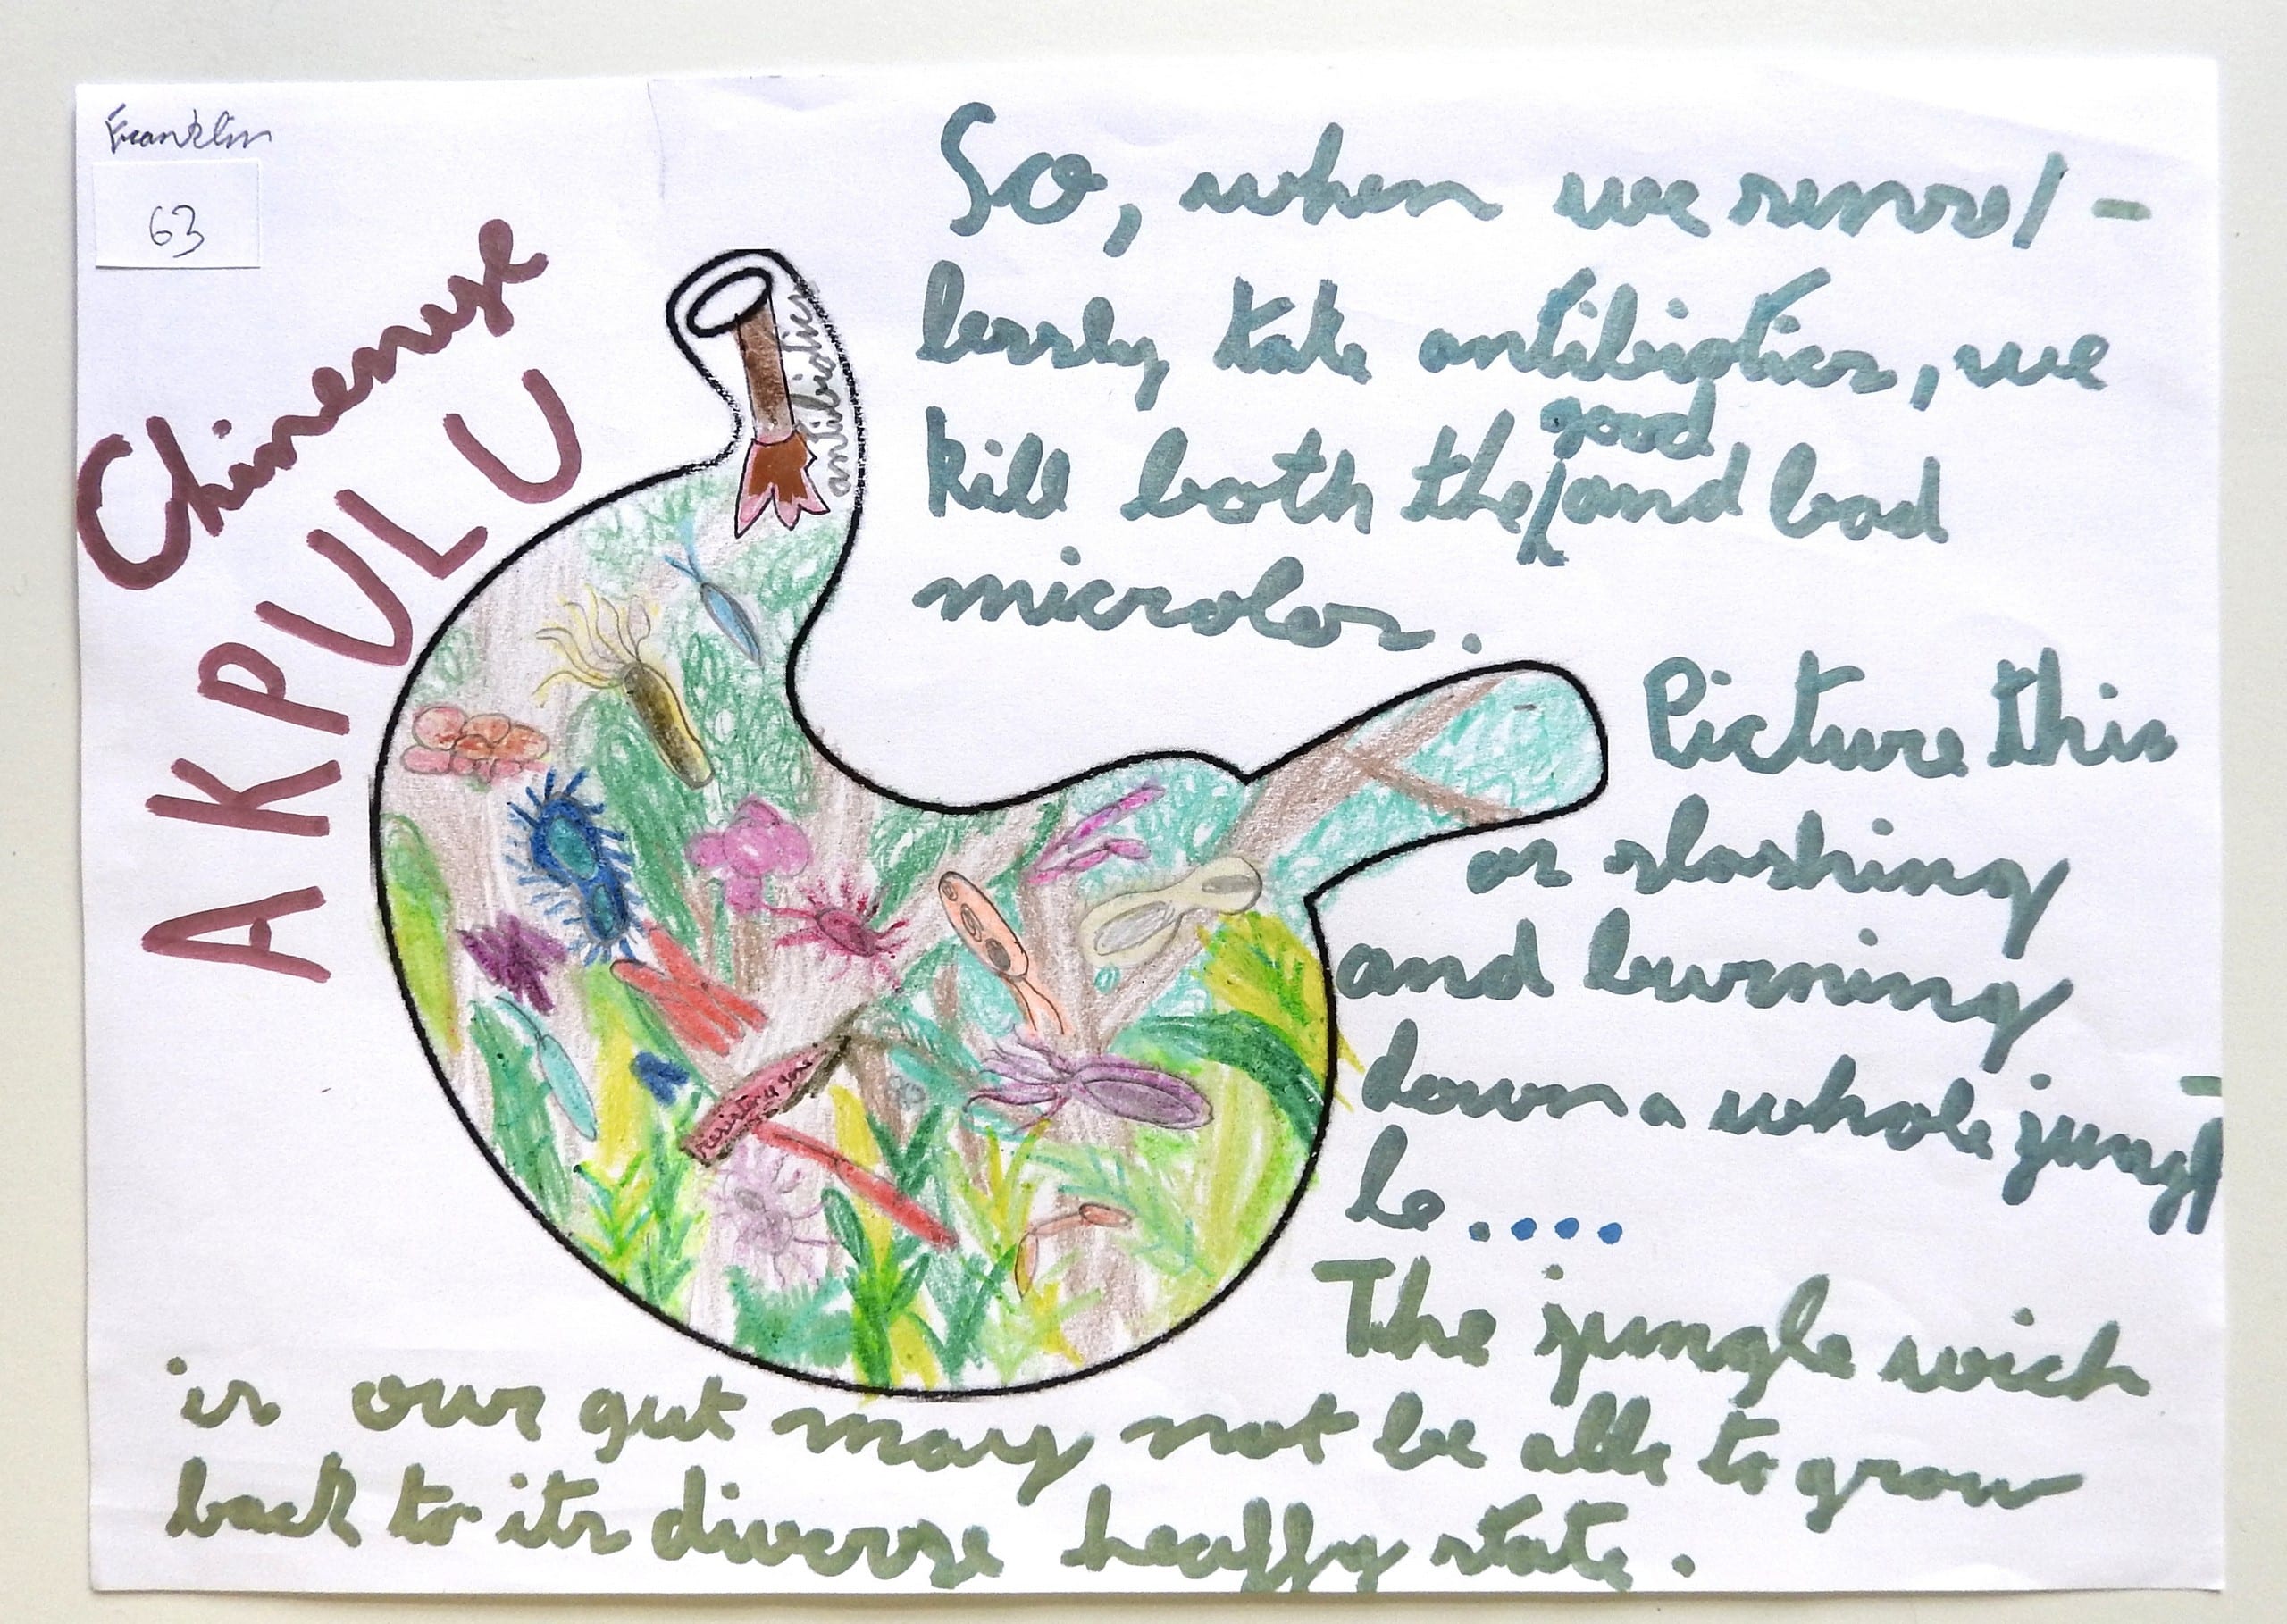 Franklin
63
Chinenyse
AKPULU
antibiotics
So, when we remorse/ -
lessly take antibiotics, we
kill both the good and bad
microbes.
Picture this
as slashing
and burning
down a whole jung-
le.....
The jungle wich
is our gut may not be able to grow
back to its diverse healthy state.